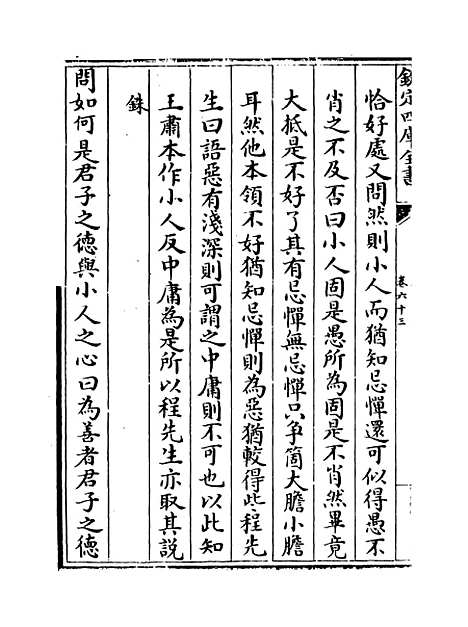 欽定四庫全書
卷六十三
恰好處又問然則小人而猶知忌憚還可似得愚不
肖之不及否曰小人固是愚所為固是不肖然畢竟
大抵是不好了其有忌憚無忌憚只争箇大膽小膽
耳然他本領不好猶知忌憚則為惡猶較得些程先
生曰語惡有淺深則可謂之中庸則不可也以此知
王肅本作小人反中庸為是所以程先生亦取其説
銖
問如何是君子之德與小人之心曰為善者君子之德